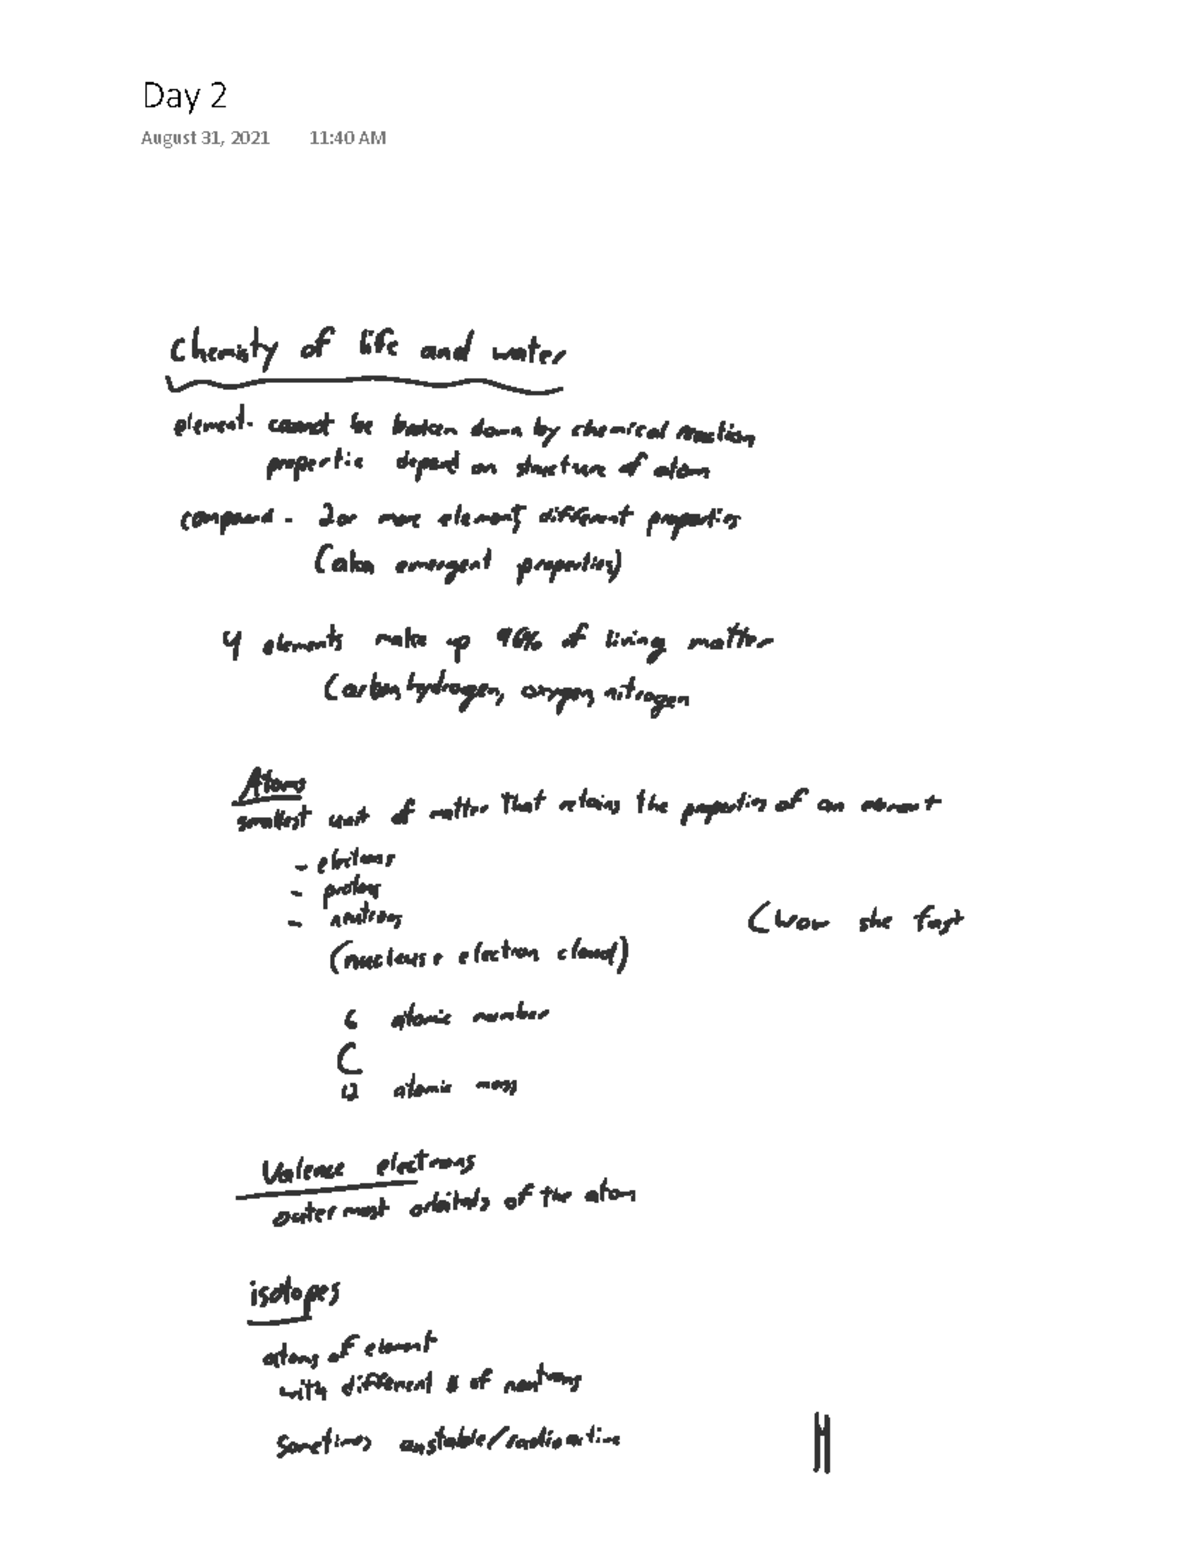 Day 2
August 31, 2021 11:40 AM
Chemisty of life and water
element- cannot be broken down by chemical reaction
propertie depend on structure of atom
compound - 2 or more element, different properties
(aka emergent properties)
4 elements make up 96% of living matter
Carbon, hydrogen, oxygen, nitrogen
Atoms
smallest unit of matter that retains the properties of an element
- electrons
- protons
- neutrons
(wow she fast
(nucleus + electron cloud)
6 atomic number
C
12 atomic mass
Valence electrons
outer most orbitals of the atom
isotopes
atoms of element
with different # of neutrons
Sometimes unstable/radioactive